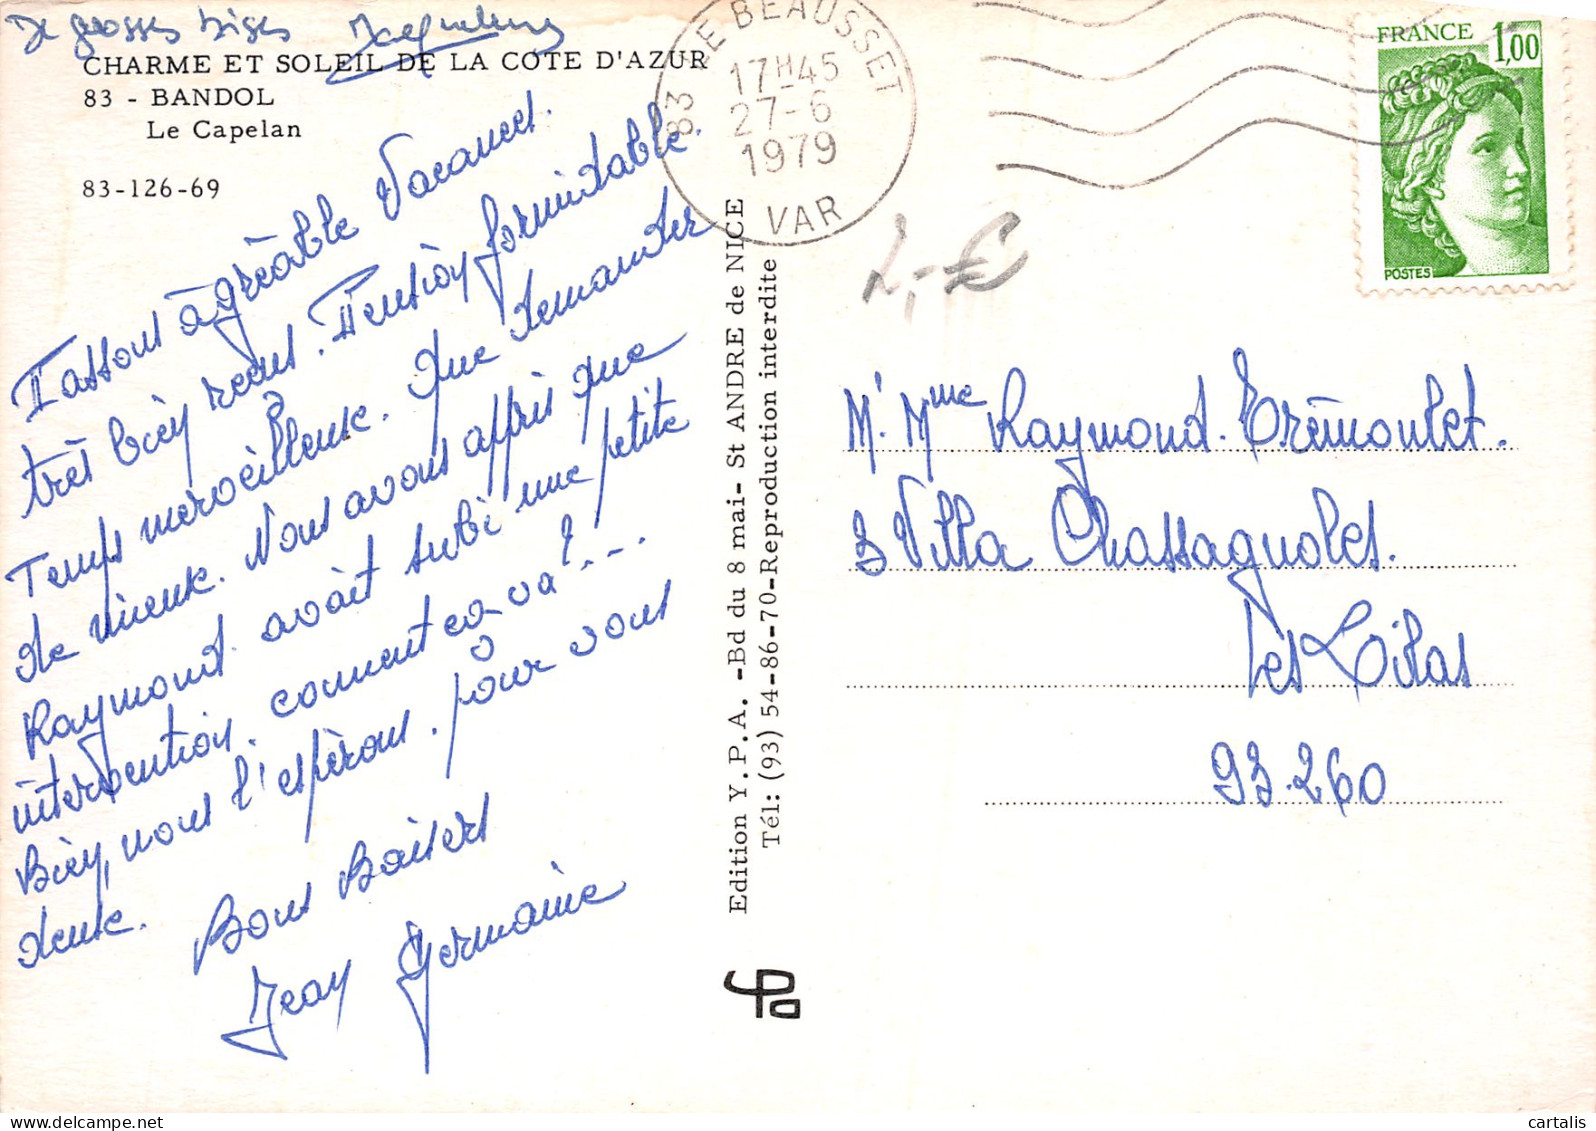 De grosses bises Jacqueline
CHARME ET SOLEIL DE LA COTE D'AZUR
83 - BANDOL
Le Capelan
83-126-69
Passons agréable Vacances.
très bien reçus. Pension formidable.
Temps merveilleux. Que demander
de mieux. Nous avons appris que
Raymond avait subi une petite
intervention. comment ça va? ...
Bien, nous l'espérons. pour vous
deux.
Bons Baisers
Jean Germaine
Edition Y.P.A. -Bd du 8 mai- St ANDRE de NICE
Tél: (93) 54-86-70-Reproduction interdite
83 LE BEAUSSET
17H45
27-6
1979
VAR
FRANCE 1,00
POSTES
2,-€
Mr. Mme Raymond. Trémoulet.
3 Villa Chassagnoles.
Les Lilas
93.260
cartalis